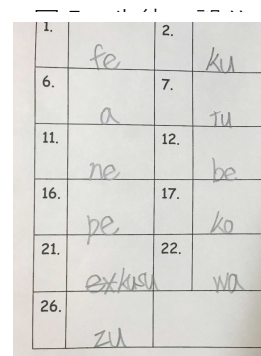 1. fe 2. ku
6. a 7. tu
11. ne 12. be
16. pe 17. ko
21. exkusu 22. wa
26. zu